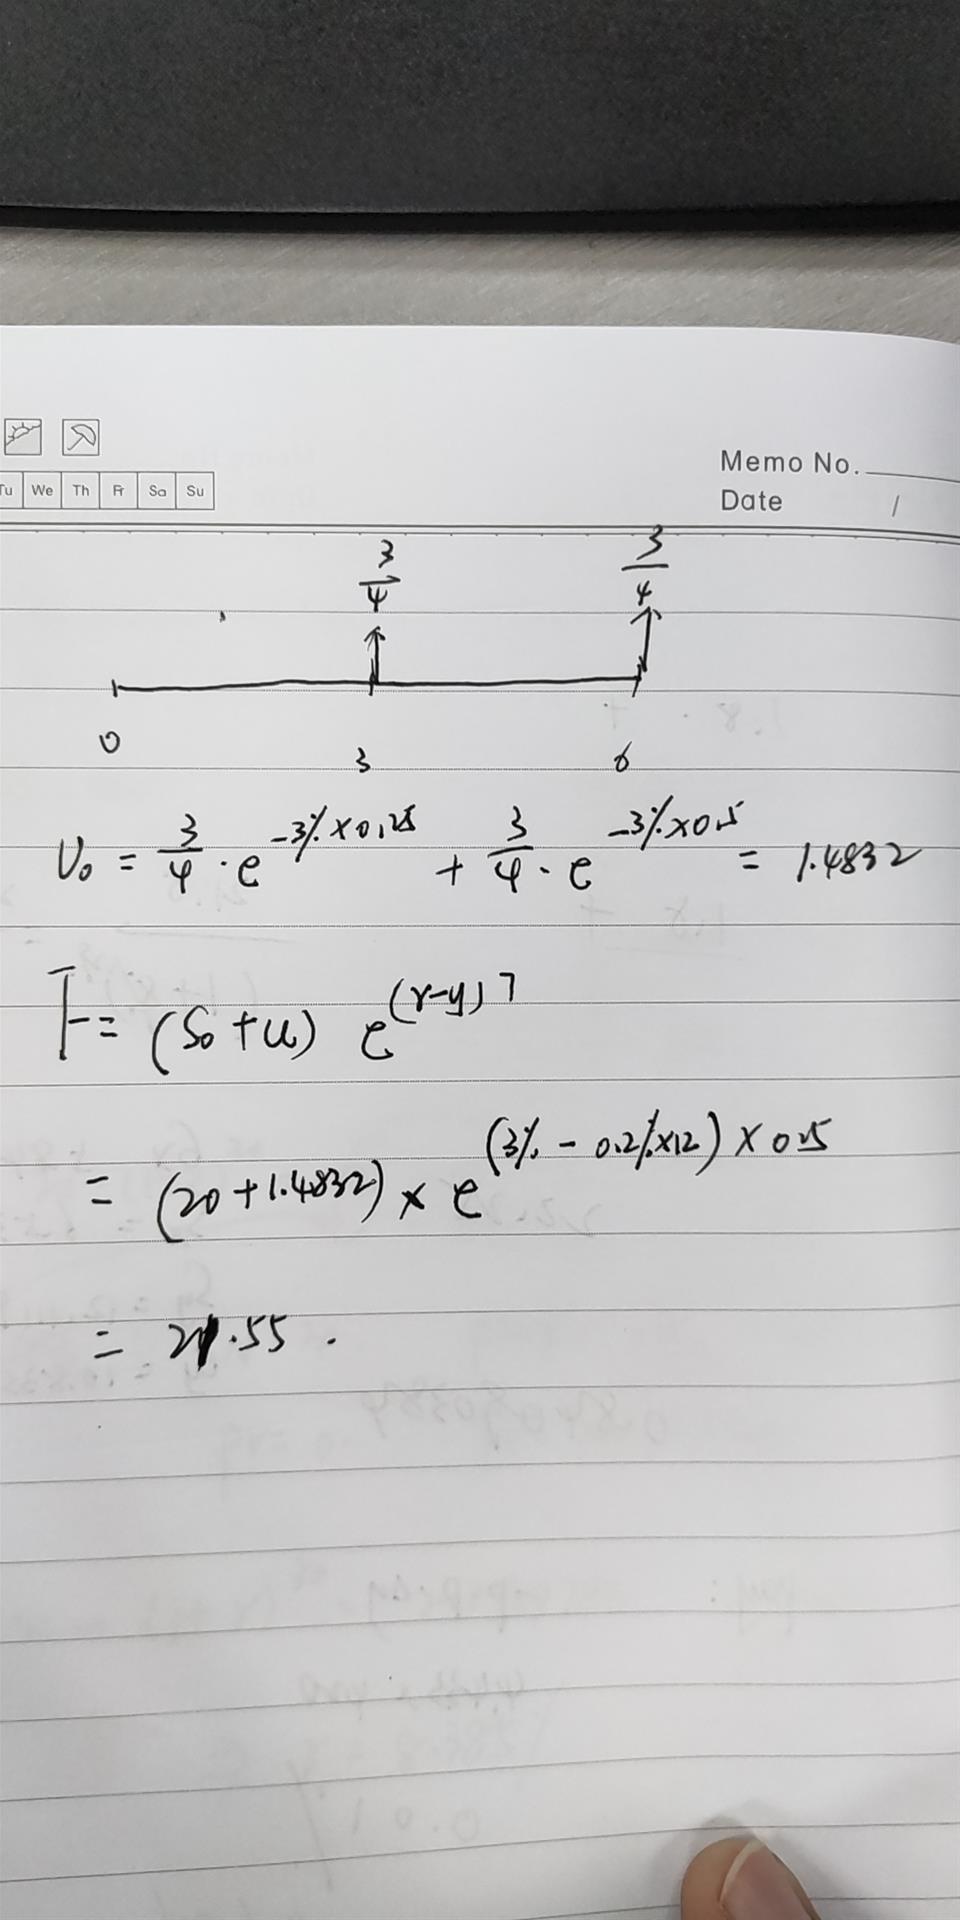 Tu We Th Fr Sa Su
Memo No.
Date /
3/4 3/4
0 3 6
U₀ = 3/4 · e^(-3% × 0.25) + 3/4 · e^(-3% × 0.5) = 1.4832
F = (S₀ + u) e^((r-y)T)
= (20 + 1.4832) × e^((3% - 0.2% × 12) × 0.5)
= 21.55 .